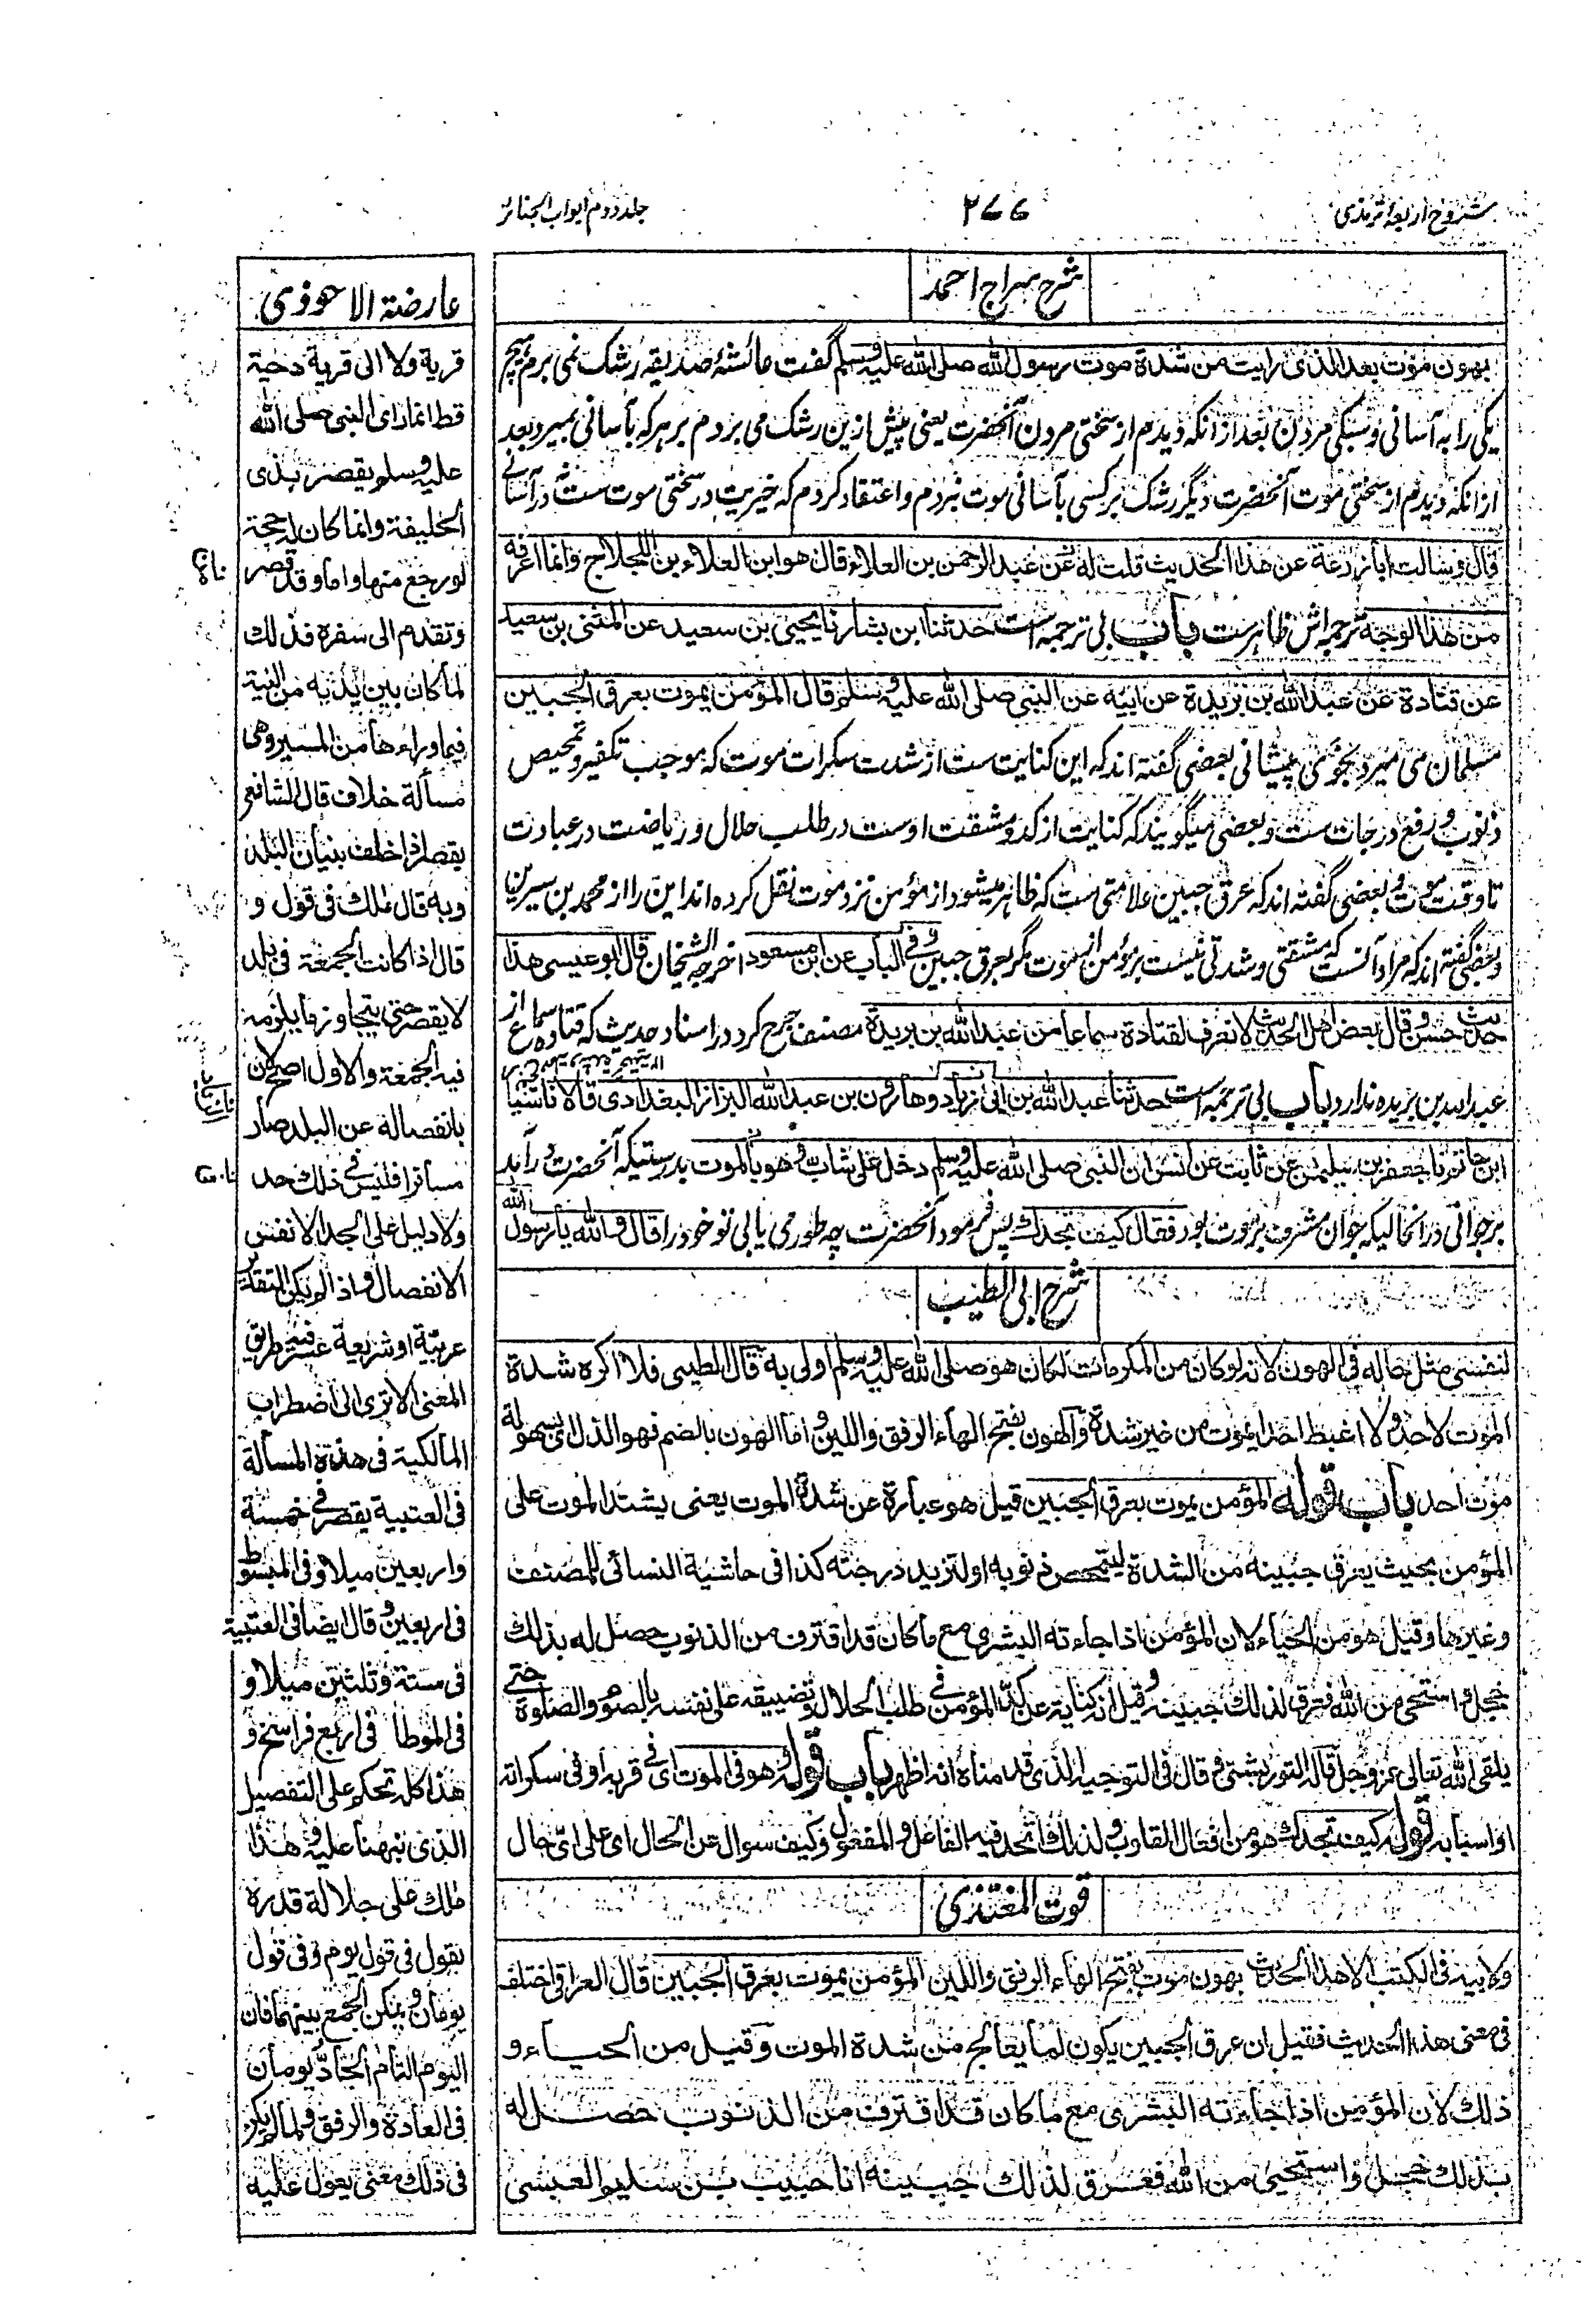 شروح اربعہ ترمذی
۲۷۷
جلد دوم ابواب الجنائز
شرح سراج احمد
بهون موت بعد الذی رایت من شدة موت رسول الله صلی الله علیه وسلم گفت عائشۂ صدیقہ رشک نمی برم ہیچ
یکی را به آسانی و سبکی مردن بعد از انکه دیدم از سختی مردن آنحضرت یعنی پیش ازین رشک می بردم بر هر که بآسانی بمیرد بعد
از انکه دیدم از سختی موت آنحضرت دیگر رشک بر کسی بآسانی موت نبردم و اعتقاد کردم که خیریت در سختی موت ست نه در آسانے
قال وسالت ابا زرعة عن هذا الحدیث قلت له من عبد الرحمن بن العلاء قال هو ابن العلاء بن اللجلاج وانما اعرفه
من هذا الوجه ترجمہ اش ظاہرست باب بی ترجمہ است حدثنا ابن بشار نا یحیی بن سعید عن المثنی بن سعید
عن قتادة عن عبد الله بن بریدة عن ابیه عن النبی صلی الله علیه وسلم قال المؤمن یموت بعرق الجبین
مسلمان می میرد بخوئی پیشانی بعضی گفته اند که این کنایت ست از شدت سکرات موت که موجب تکفیر و تمحیص
ذنوب و رفع درجات ست و بعضی میگویند که کنایت از کد و مشقت اوست در طلب حلال و ریاضت در عبادت
تا وقت موت و بعضی گفته اند که عرق جبین علامتی ست که ظاہر میشود از مؤمن نزد موت نقل کرده اند این را از محمد بن سیرین
و بعضی گفته اند که مراد آنست که مشقتی و شدتی نیست بر مؤمن از موت مگر بعرق جبین وفی الباب عن ابن مسعود اخرجه الشیخان قال ابو عیسی هذا
حدیث حسن وقال بعض اهل الحدیث لا نعرف لقتادة سماعا من عبد الله بن بریدة مصنف جرح کرد در اسناد حدیث که قتاده سماع از
عبد الله بن بریده ندارد باب بی ترجمہ است حدثنا عبد الله بن ابی زیاد وهارون بن عبد الله البزاز البغدادی قالا نا سیار
ابن حاتم نا جعفر بن سلیمن عن ثابت عن انس ان النبی صلی الله علیه وسلم دخل علی شاب وهو بالموت بدرستیکه آنحضرت در آمد
بر جوانی در انحالیکه جوان مشرف بر موت بود فقال کیف تجدك پس فرمود آنحضرت چه طور می یابی تو خود را قال والله یا رسول الله
شرح ابی الطیب
لنفسی مثل حاله فی الهون لانه لو کان من المکرمات لکان هو صلی الله علیه وسلم اولی به قال الطیبی فلا اکره شدة
الموت لاحد ولا اغبط احدا یموت من غیر شدة والهون بفتح الهاء الرفق واللین واما الهون بالضم فهو الذل ای بسهولة
موت احد باب قوله المؤمن یموت بعرق الجبین قیل هو عبارة عن شدة الموت یعنی یشتد الموت علی
المؤمن بحیث یعرق جبینه من الشدة لیتمحص ذنوبه او لتزید درجته کذا فی حاشیة النسائی للمصنف
وغیرها وقیل هو من الحیاء لان المؤمن اذا جاءته البشری مع ما کان قد اقترف من الذنوب حصل له بذلك
خجل واستحی من الله فعرق لذلك جبینه وقیل انه کنایة عن کد المؤمن فی طلب الحلال وتضییقه علی نفسه بالصوم والصلوة حتی
یلقی الله تعالی عز وجل قاله التوربشتی وقال فی التوجیه الذی قدمناه انه اظهر باب قوله وهو فی الموت ای فی قربه او فی سکراته
او اسبابه قوله کیف تجدك هو من افعال القلوب ولذلك اتحد فیه الفاعل والمفعول وکیف سوال عن الحال ای علی ایّ حال
قوت المغتذی
ولابیه فی الکتب الا هذا الحدیث بهون موت بفتح الهاء الرفق واللین المؤمن یموت بعرق الجبین قال العراقی اختلف
فی معنی هذا الحدیث فقیل ان عرق الجبین یکون لما یعالج من شدة الموت وقیل من الحیاء و
ذلك لان المؤمن اذا جاءته البشری مع ما کان قد اقترف من الذنوب حصل له
بذلك خجل واستحیی من الله فعرق لذلك جبینه انا حبیب بن سلیم العبسی
عارضة الاحوذی
قریة ولا الی قریة دحیة
قط انما رای النبی صلی الله
علیه وسلم یقصر بذی
الحلیفة وانما کان لحجة
لو رجع منها واما وقد قصر
وتقدم الی سفره فذلك
لما کان بین یدیه من النیة
فیما وراءها من المسیر وهی
مسألة خلاف قال الشافعی
یقصر اذا خلف بنیان البلد
وبه قال ملك فی قول و
قال اذا کانت الجمعة فی بلد
لا یقصر حتی یتجاوز ما یلزمه
فیه الجمعة والاول اصح لان
بانفصاله عن البلد صار
مسافرا فلیس فی ذلك حد
ولا دلیل علی الحد الا نفس
الانفصال واذا لم یکن
عربیة او شریعة عسر فیه طریق
المعنی الا تری الی اضطراب
المالکیة فی هذه المسألة
فی العتبیة یقصر فی خمسة
واربعین میلا وفی المبسوط
فی اربعین وقال ایضا فی العتبیة
فی ستة وثلثین میلا و
فی الموطا فی اربع فراسخ و
هذا کله تحکم علی التفصیل
الذی نبهنا علیه وهذا
ملك علی جلالة قدره
یقول فی قول یوم وفی قول
یومان ویمکن الجمع بینهما فان
الیوم التام الجاد یومان
فی العادة والرفق ولما لم یکن
فی ذلك معنی یعول علیه